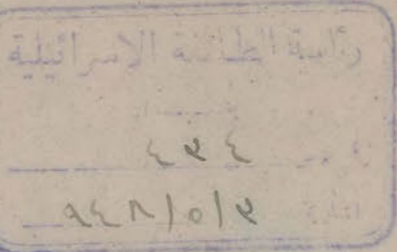 رئاسة الطائفة الاسرائيلية
٤٣٤
٩٤٨/٥/٣